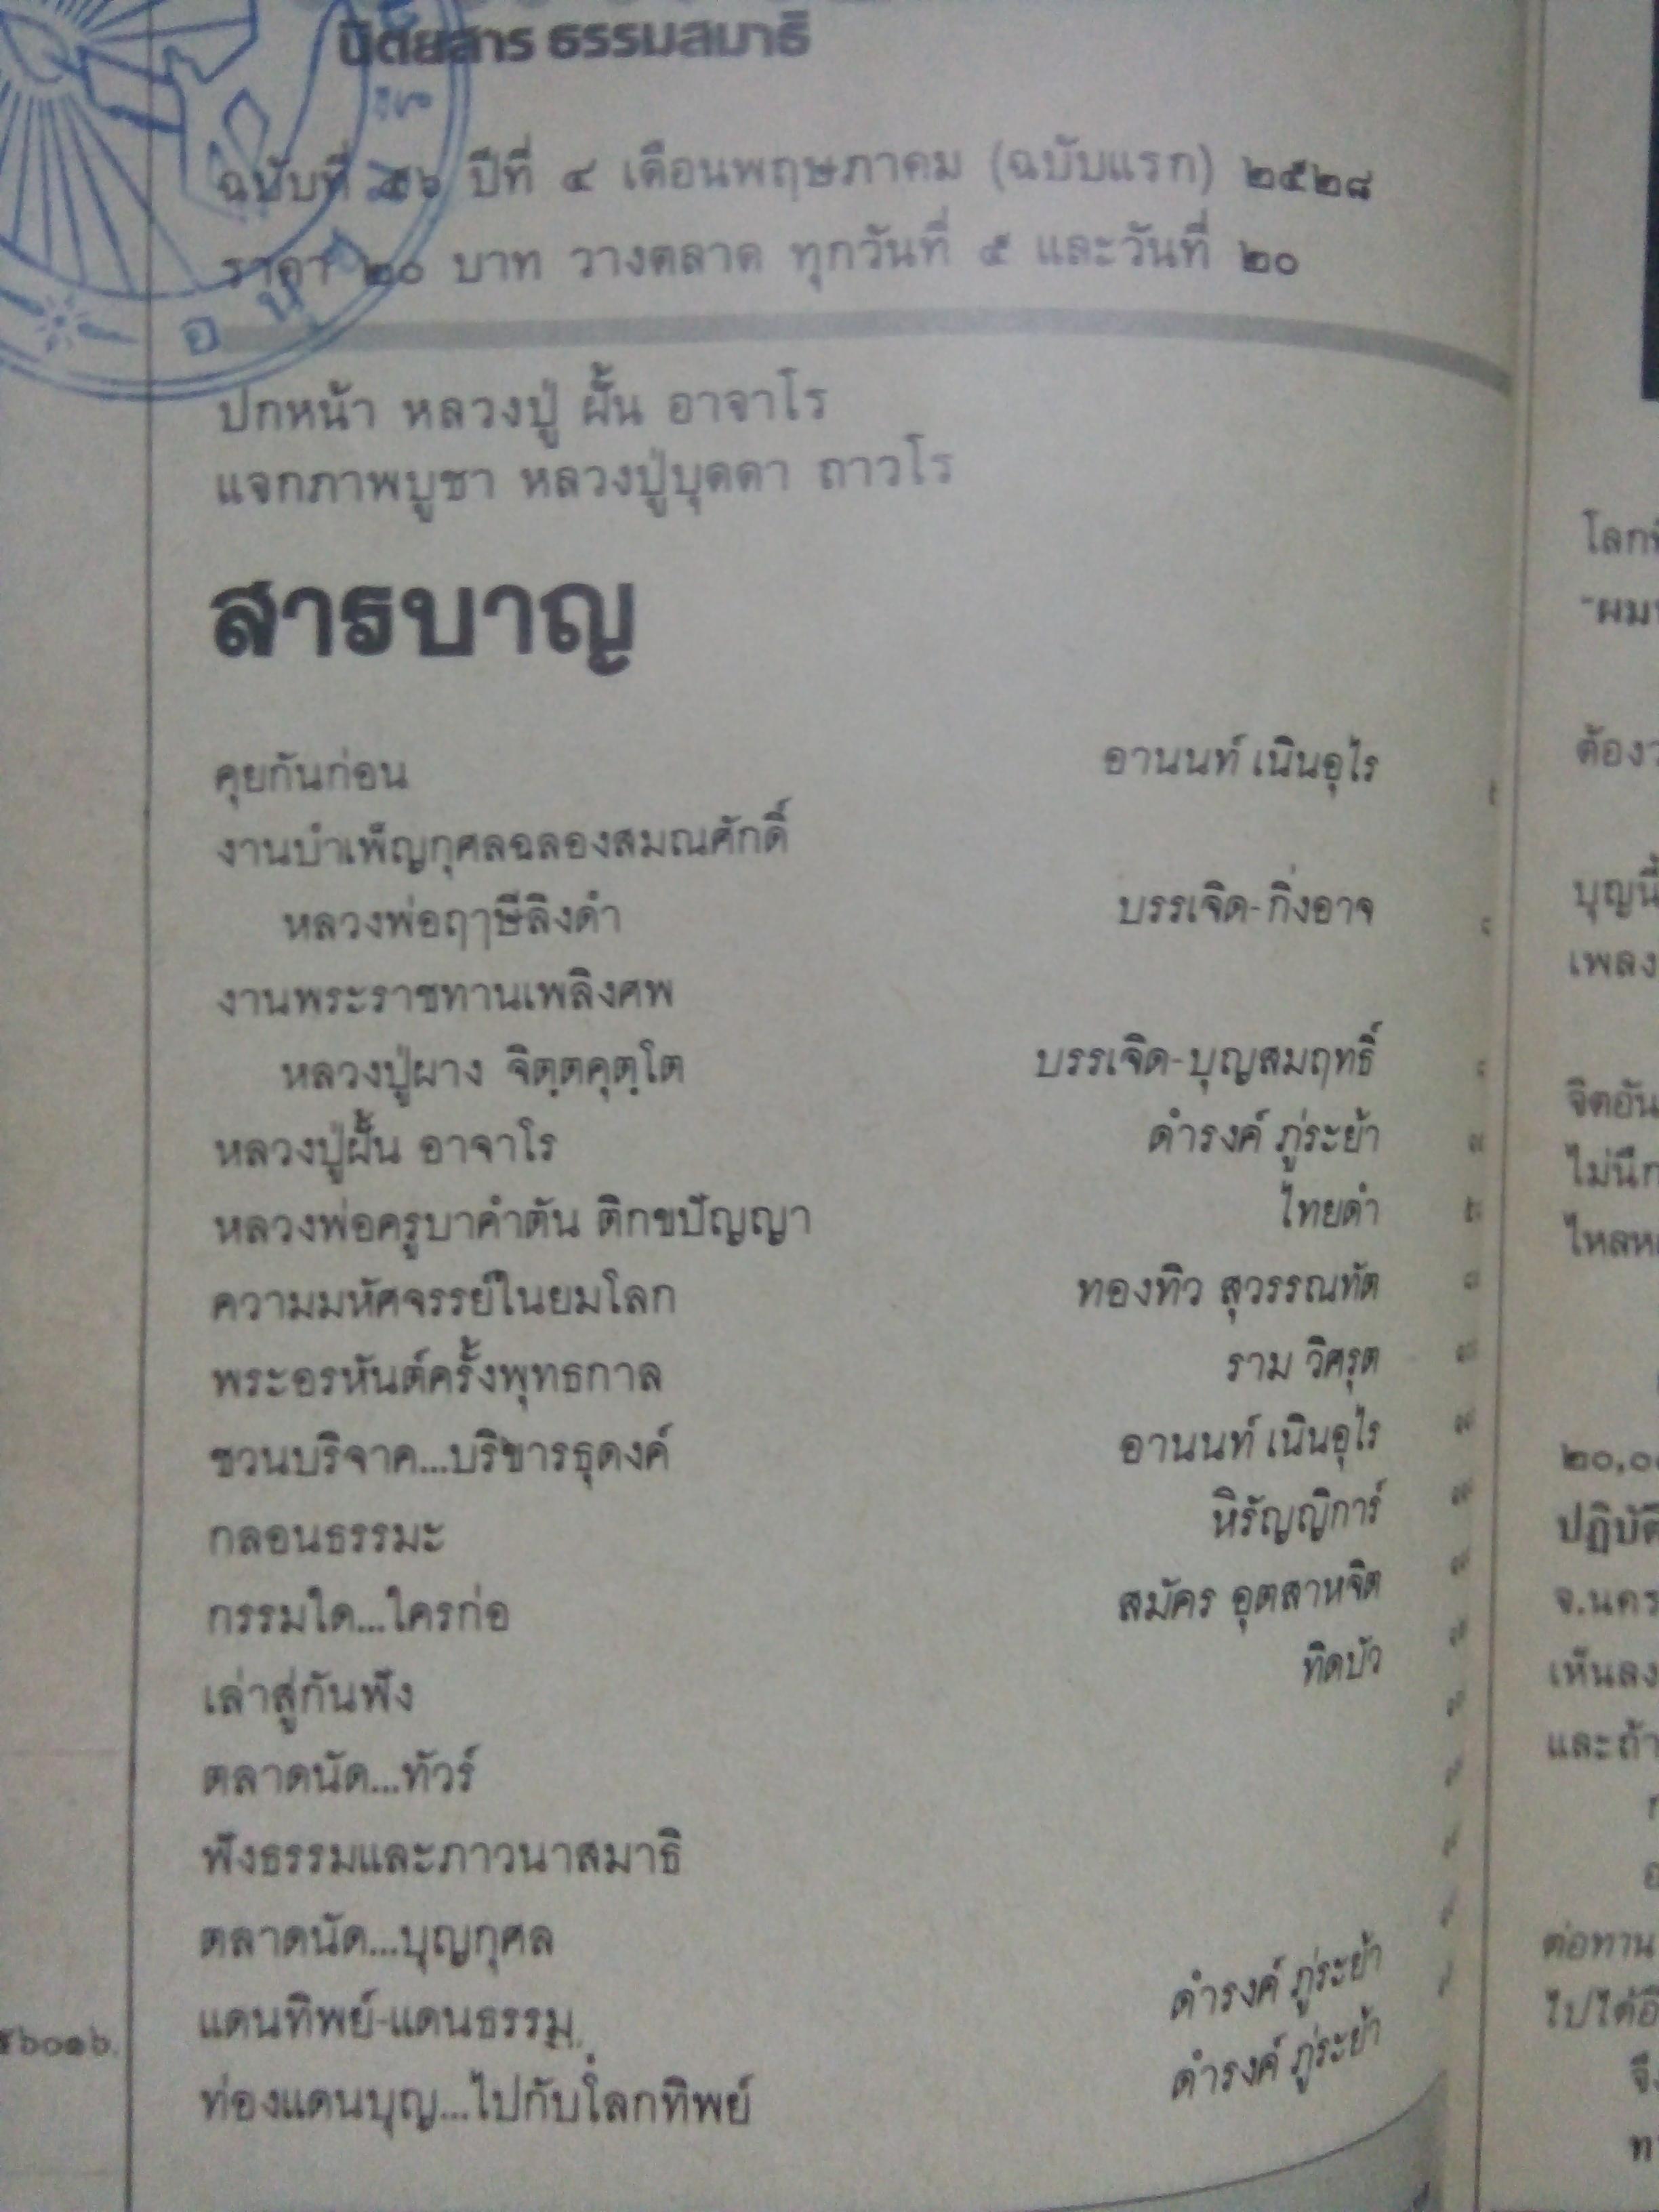 นิตยสาร ธรรมสมาธิ
ฉบับที่ ๕๖ ปีที่ ๔ เดือนพฤษภาคม (ฉบับแรก) ๒๕๒๘
ราคา ๒๐ บาท วางตลาด ทุกวันที่ ๕ และวันที่ ๒๐
ปกหน้า หลวงปู่ ฝั้น อาจาโร
แจกภาพบูชา หลวงปู่บุดดา ถาวโร
สารบาญ
คุยกันก่อน อานนท์ เนินอุไร
งานบำเพ็ญกุศลฉลองสมณศักดิ์
หลวงพ่อฤๅษีลิงดำ บรรเจิด-กิ่งอาจ
งานพระราชทานเพลิงศพ
หลวงปู่ผาง จิตฺตคุตฺโต บรรเจิด-บุญสมฤทธิ์
หลวงปู่ฝั้น อาจาโร ดำรงค์ ภู่ระย้า
หลวงพ่อครูบาคำตัน ติกขปัญญา ไทยดำ
ความมหัศจรรย์ในยมโลก ทองทิว สุวรรณทัต
พระอรหันต์ครั้งพุทธกาล ราม วิศรุต
ชวนบริจาค...บริขารธุดงค์ อานนท์ เนินอุไร
กลอนธรรมะ หิรัญญิการ์
กรรมใด...ใครก่อ สมัคร อุตสาหจิต
เล่าสู่กันฟัง ทิดบัว
ตลาดนัด...ทัวร์
ฟังธรรมและภาวนาสมาธิ
ตลาดนัด...บุญกุศล
แดนทิพย์-แดนธรรม ดำรงค์ ภู่ระย้า
ท่องแดนบุญ...ไปกับโลกทิพย์ ดำรงค์ ภู่ระย้า